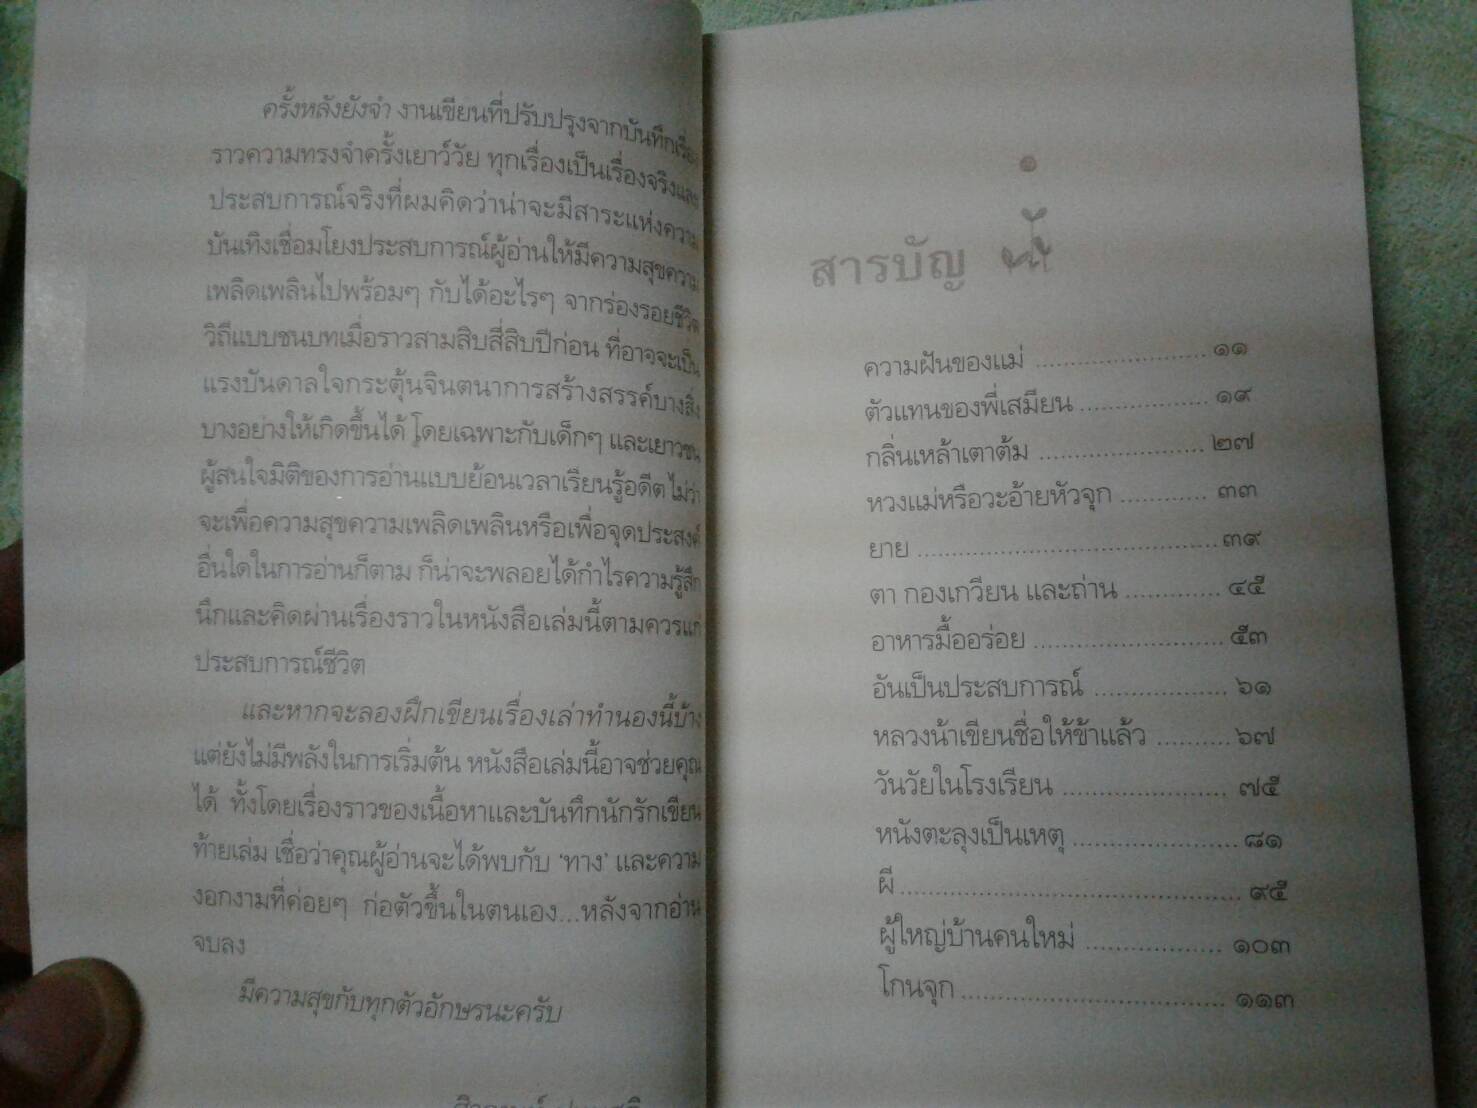 ครั้งหลังยังจำ งานเขียนที่ปรับปรุงจากบันทึกเรื่อง
ราวความทรงจำครั้งเยาว์วัย ทุกเรื่องเป็นเรื่องจริงและ
ประสบการณ์จริงที่ผมคิดว่าน่าจะมีสาระแห่งความ
บันเทิงเชื่อมโยงประสบการณ์ผู้อ่านให้มีความสุขความ
เพลิดเพลินไปพร้อมๆ กับได้อะไรๆ จากร่องรอยชีวิต
วิถีแบบชนบทเมื่อราวสามสิบสี่สิบปีก่อน ที่อาจจะเป็น
แรงบันดาลใจกระตุ้นจินตนาการสร้างสรรค์บางสิ่ง
บางอย่างให้เกิดขึ้นได้ โดยเฉพาะกับเด็กๆ และเยาวชน
ผู้สนใจมิติของการอ่านแบบย้อนเวลาเรียนรู้อดีต ไม่ว่า
จะเพื่อความสุขความเพลิดเพลินหรือเพื่อจุดประสงค์
อื่นใดในการอ่านก็ตาม ก็น่าจะพลอยได้กำไรความรู้สึก
นึกและคิดผ่านเรื่องราวในหนังสือเล่มนี้ตามควรแก่
ประสบการณ์ชีวิต
และหากจะลองฝึกเขียนเรื่องเล่าทำนองนี้บ้าง
แต่ยังไม่มีพลังในการเริ่มต้น หนังสือเล่มนี้อาจช่วยคุณ
ได้ ทั้งโดยเรื่องราวของเนื้อหาและบันทึกนักรักเขียน
ท้ายเล่ม เชื่อว่าคุณผู้อ่านจะได้พบกับ ‘ทาง’ และความ
งอกงามที่ค่อยๆ ก่อตัวขึ้นในตนเอง...หลังจากอ่าน
จบลง
มีความสุขกับทุกตัวอักษรนะครับ
๑
สารบัญ
ความฝันของแม่ ........................ ๑๑
ตัวแทนของพี่เสมียน .................. ๑๙
กลิ่นเหล้าเตาต้ม ....................... ๒๗
หวงแม่หรือวะอ้ายหัวจุก ............ ๓๓
ยาย .......................................... ๓๙
ตา กองเกวียน และถ่าน ............. ๔๕
อาหารมื้ออร่อย .......................... ๕๓
อันเป็นประสบการณ์ .................. ๖๑
หลวงน้าเขียนชื่อให้ข้าแล้ว .......... ๖๗
วันวัยในโรงเรียน ....................... ๗๕
หนังตะลุงเป็นเหตุ ....................... ๘๑
ผี ................................................ ๙๕
ผู้ใหญ่บ้านคนใหม่ ................... ๑๐๓
โกนจุก ..................................... ๑๑๓